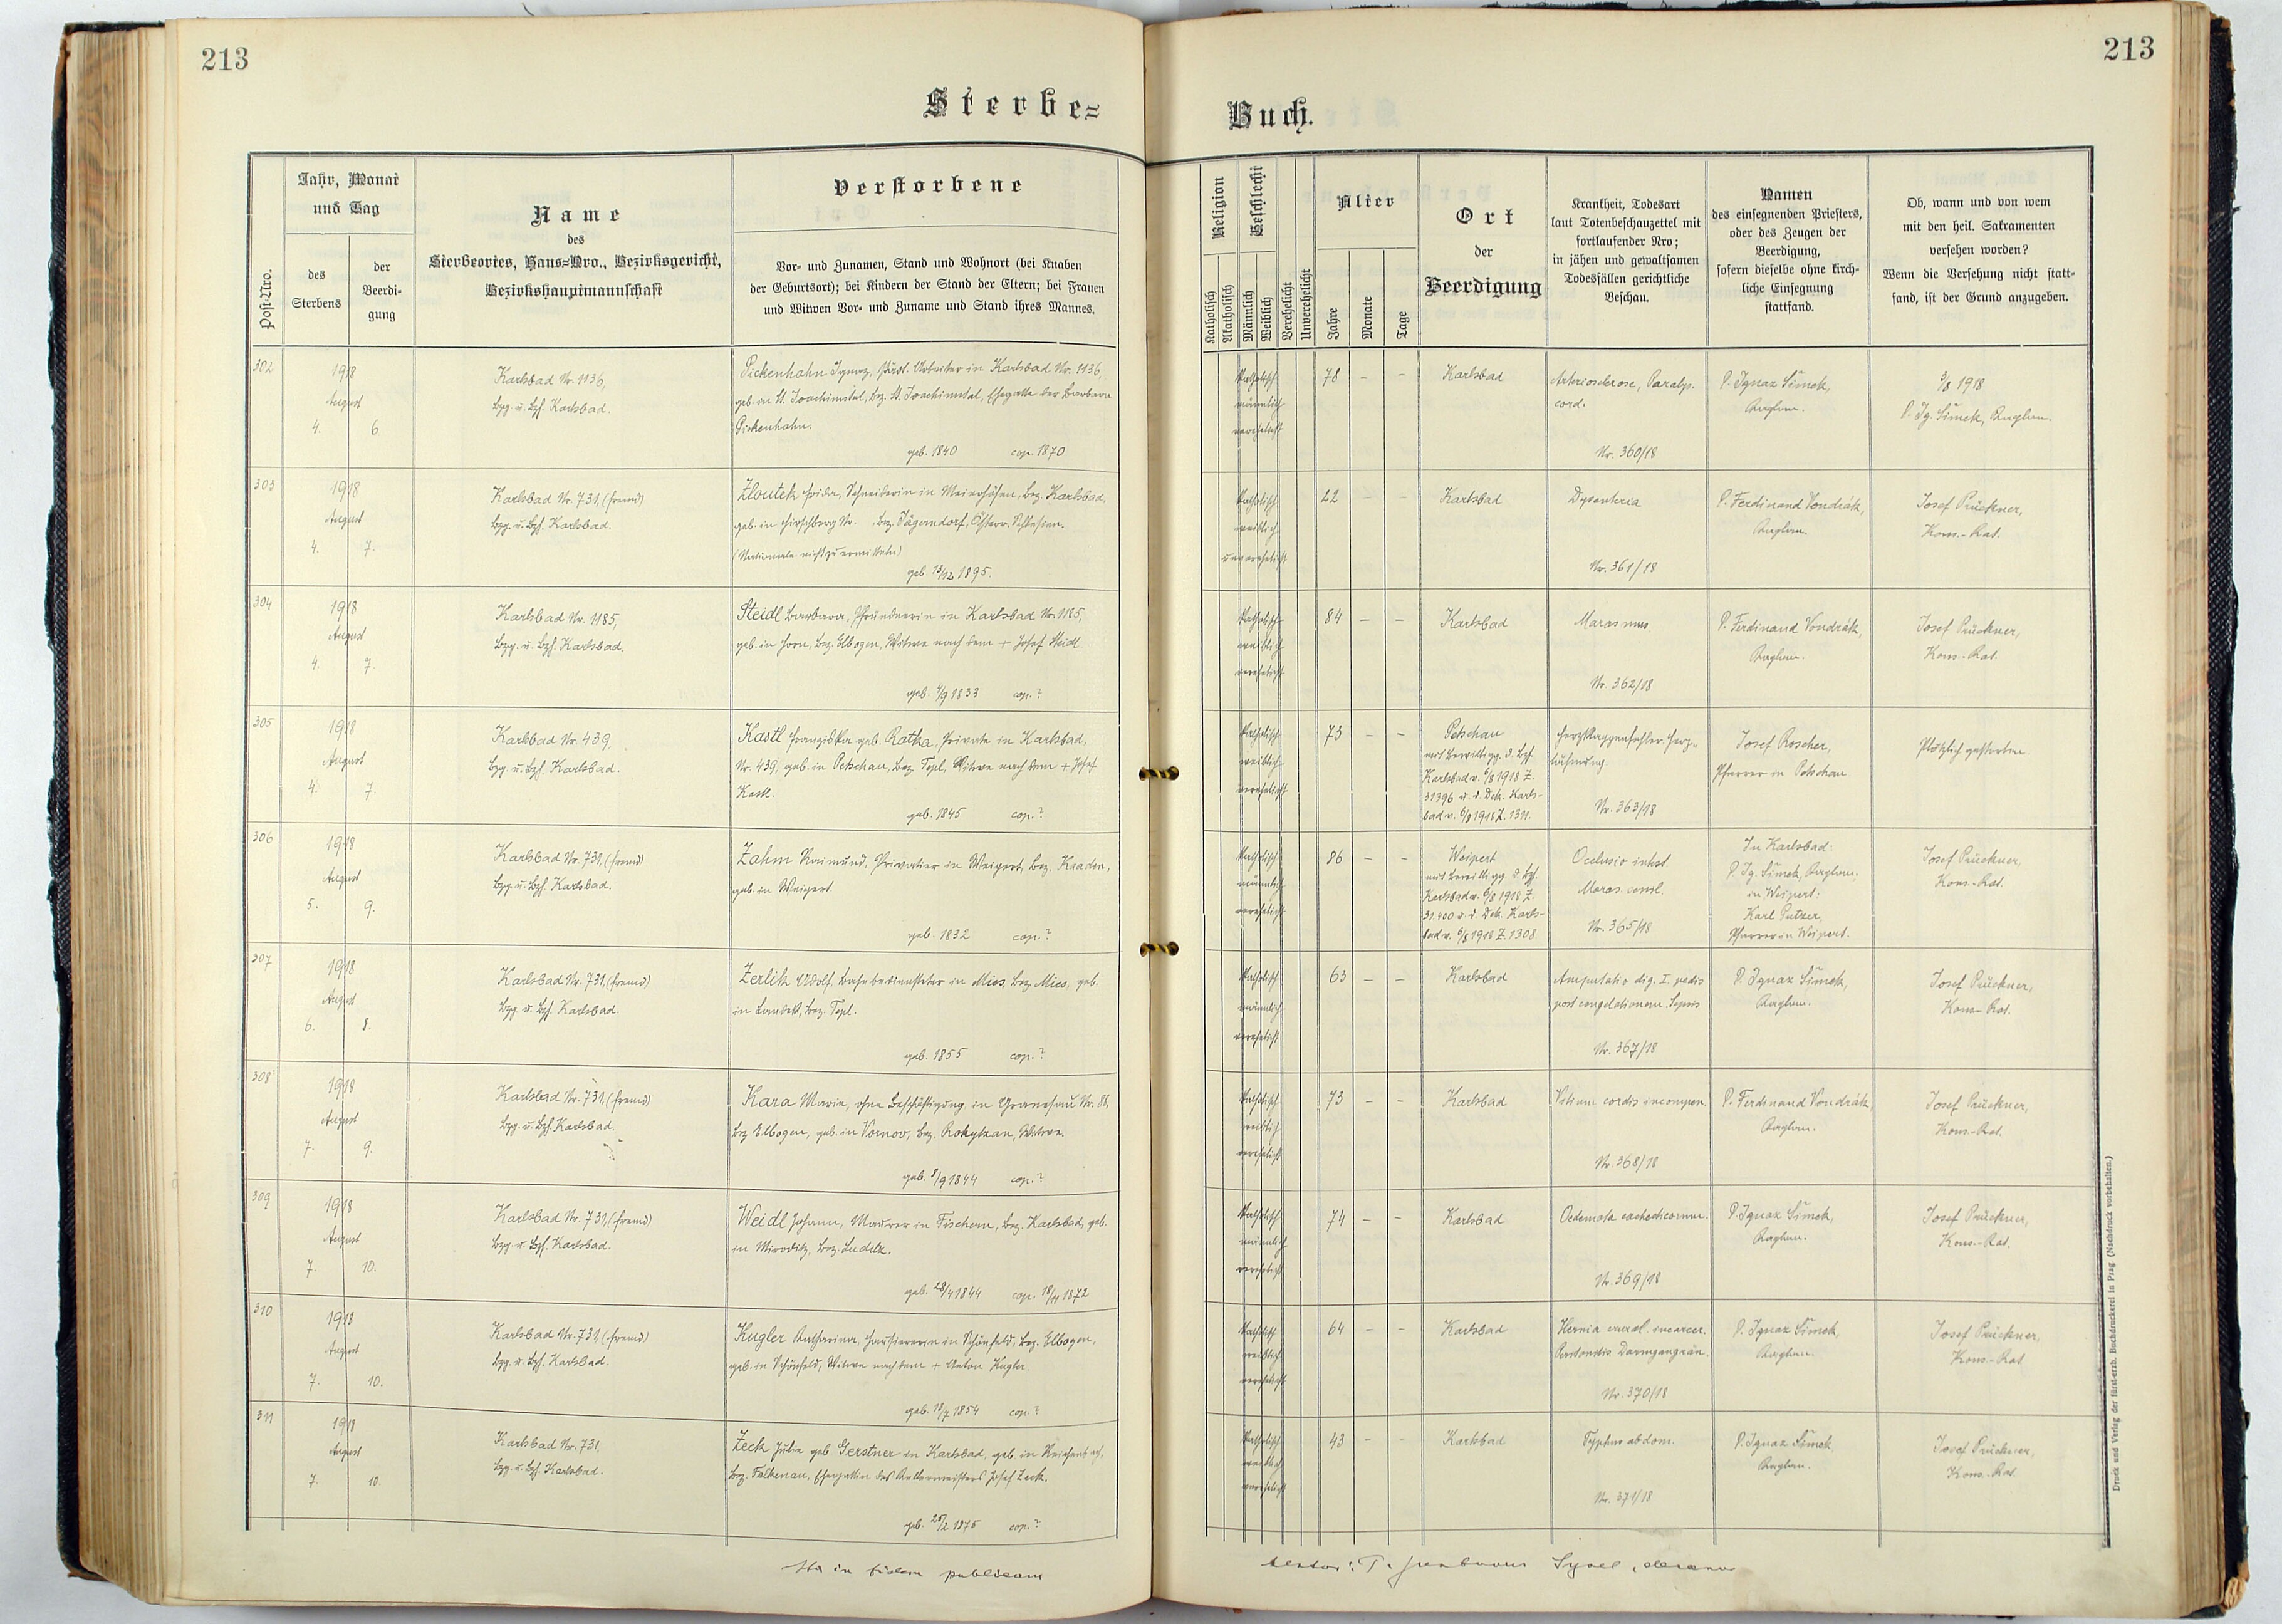 213
213
Sterbe=
Buch.
Post-Nro.
Jahr, Monat
und Tag
des
Sterbens
der
Beerdi-
gung
Name
des
Sterbeortes, Haus=Nro., Bezirksgericht,
Bezirkshauptmannschaft
Verstorbene
Vor- und Zunamen, Stand und Wohnort (bei Knaben
der Geburtsort); bei Kindern der Stand der Eltern; bei Frauen
und Witwen Vor- und Zuname und Stand ihres Mannes.
Religion
Katholisch
Akatholisch
Geschlecht
Männlich
Weiblich
Verehelicht
Unverehelicht
Alter
Jahre
Monate
Tage
Ort
der
Beerdigung
Krankheit, Todesart
laut Totenbeschauzettel mit
fortlaufender Nro;
in jähen und gewaltsamen
Todesfällen gerichtliche
Beschau.
Namen
des einsegnenden Priesters,
oder des Zeugen der
Beerdigung,
sofern dieselbe ohne kirch-
liche Einsegnung
stattfand.
Ob, wann und von wem
mit den heil. Sakramenten
versehen worden?
Wenn die Versehung nicht statt-
fand, ist der Grund anzugeben.
302
1918
August
4. 6
Karlsbad Nr. 1136,
Bzg. u. Bzh. Karlsbad.
Pickenhahn Ignaz, städt. Arbeiter in Karlsbad Nr. 1136,
geb. in St. Joachimstal, Bez. St. Joachimstal, Ehegatte der Barbara
Pickenhahn.
geb. 1840 cop. 1870
katholisch
männlich
verehelicht
78 – –
Karlsbad
Arteriosclerose, Paralys.
cord.
Nr. 360/18
P. Ignaz Šimek,
Kaplan.
3/8 1918
P. Ig. Šimek, Kaplan.
303
1918
August
4. 7.
Karlsbad Nr. 731, (fremd)
Bzg. u. Bzh. Karlsbad.
Zloutek Frida, Schneiderin in Meierhöfen, Bez. Karlsbad,
geb. in Hirschberg Nr. , Bez. Jägerndorf, Österr. Schlesien.
(Nationale nicht zu ermitteln)
geb. 13/12 1895.
katholisch
weiblich
unverehelicht
22 – –
Karlsbad
Dysenteria
Nr. 361/18
P. Ferdinand Vondrák,
Kaplan.
Josef Prückner,
Kons.-Rat.
304
1918
August
4. 7
Karlsbad Nr. 1185,
Bzg. u. Bzh. Karlsbad.
Steidl Barbara, Pfründnerin in Karlsbad Nr. 1185,
geb. in Horn, Bez. Elbogen, Witwe nach dem + Josef Steidl
geb. 4/9 1833 cop. ?
katholisch
weiblich
verehelicht
84 – –
Karlsbad
Marasmus
Nr. 362/18
P. Ferdinand Vondrák,
Kaplan.
Josef Prückner,
Kons.-Rat.
305
1918
August
4. 7.
Karlsbad Nr. 439,
Bzg. u. Bzh. Karlsbad.
Kastl Franziska geb. Ratka, Private in Karlsbad,
Nr. 439, geb. in Petschau, Bez. Tepl, Witwe nach dem + Josef
Kastl.
geb. 1845 cop. ?
katholisch
weiblich
verehelicht
73 – –
Petschau
mit Bewilligg. d. Bzh.
Karlsbad v. 6/8 1918 Z.
31396 u. d. Dek. Karls-
bad v. 6/8 1918 Z. 1311.
Herzklappenfehler. Herz-
lähmung.
Nr. 363/18
Josef Roscher,
Pfarrer in Petschau
Plötzlich gestorben.
306
1918
August
5. 9.
Karlsbad Nr. 731, (fremd)
Bzg. u. Bzh. Karlsbad.
Zahm Raimund, Privatier in Weipert, Bez. Kaaden,
geb. in Weipert.
geb. 1832 cop. ?
katholisch
männlich
verehelicht
86 – –
Weipert
mit Bewilligg. d. Bzh.
Karlsbad v. 6/8 1918 Z.
31.400 u. d. Dek. Karls-
bad v. 6/8 1918 Z. 1308
Occlusio intest.
Maras. senil.
Nr. 365/18
In Karlsbad:
P. Ig. Šimek, Kaplan;
in Weipert:
Karl Putzer,
Pfarrer in Weipert.
Josef Prückner,
Kons.-Rat.
307
1918
August
6. 8.
Karlsbad Nr. 731, (fremd)
Bzg. u. Bzh. Karlsbad.
Zerlik Adolf, Bahnbediensteter in Mies, Bez. Mies, geb.
in Landek, Bez. Tepl.
geb. 1855 cop. ?
katholisch
männlich
verehelicht
63 – –
Karlsbad
Amputatio dig. I. pedis
post congelationem. Sepsis
Nr. 367/18
P. Ignaz Šimek,
Kaplan.
Josef Prückner,
Kons.-Rat.
308
1918
August
7. 9.
Karlsbad Nr. 731, (fremd)
Bzg. u. Bzh. Karlsbad.
Kara Marie, ohne Beschäftigung in Granesau Nr. 81,
Bez. Elbogen, geb. in Vornov, Bez. Rokytzan, Witwe.
geb. 8/9 1844 cop. ?
katholisch
weiblich
verehelicht
73 – –
Karlsbad
Vitium cordis incompen.
Nr. 368/18
P. Ferdinand Vondrák,
Kaplan.
Josef Prückner,
Kons.-Rat.
309
1918
August
7. 10.
Karlsbad Nr. 731, (fremd)
Bzg. u. Bzh. Karlsbad.
Weidl Johann, Maurer in Fischern, Bez. Karlsbad, geb.
in Miroditz, Bez. Luditz.
geb. 28/4 1844 cop. 18/11 1872
katholisch
männlich
verehelicht
74 – –
Karlsbad
Oedemata cachecticorum.
Nr. 369/18
P. Ignaz Šimek,
Kaplan.
Josef Prückner,
Kons.-Rat.
310
1918
August
7. 10.
Karlsbad Nr. 731, (fremd)
Bzg. u. Bzh. Karlsbad.
Kugler Katharina, Hausiererin in Schönfeld, Bez. Elbogen,
geb. in Schönfeld, Witwe nach dem + Anton Kugler
geb. 13/7 1854 cop. ?
katholisch
weiblich
verehelicht
64 – –
Karlsbad
Hernia crural. incarcer.
Peritonitis. Darmgangrän.
Nr. 370/18
P. Ignaz Šimek,
Kaplan.
Josef Prückner,
Kons.-Rat
311
1918
August
7. 10.
Karlsbad Nr. 731,
Bzg. u. Bzh. Karlsbad.
Zeck Julie geb. Gerstner in Karlsbad, geb. in Reichenbach,
Bez. Falkenau, Ehegattin des Kellermeisters Josef Zeck.
geb. 25/2 1875 cop. ?
katholisch
weiblich
verehelicht
43 – –
Karlsbad
Typhus abdom.
Nr. 371/18
P. Ignaz Šimek
Kaplan.
Josef Prückner,
Kons.-Rat.
Ita in fidem publicam
testor: decanus
Druck und Verlag der fürst-erzb. Buchdruckerei in Prag (Nachdruck vorbehalten.)